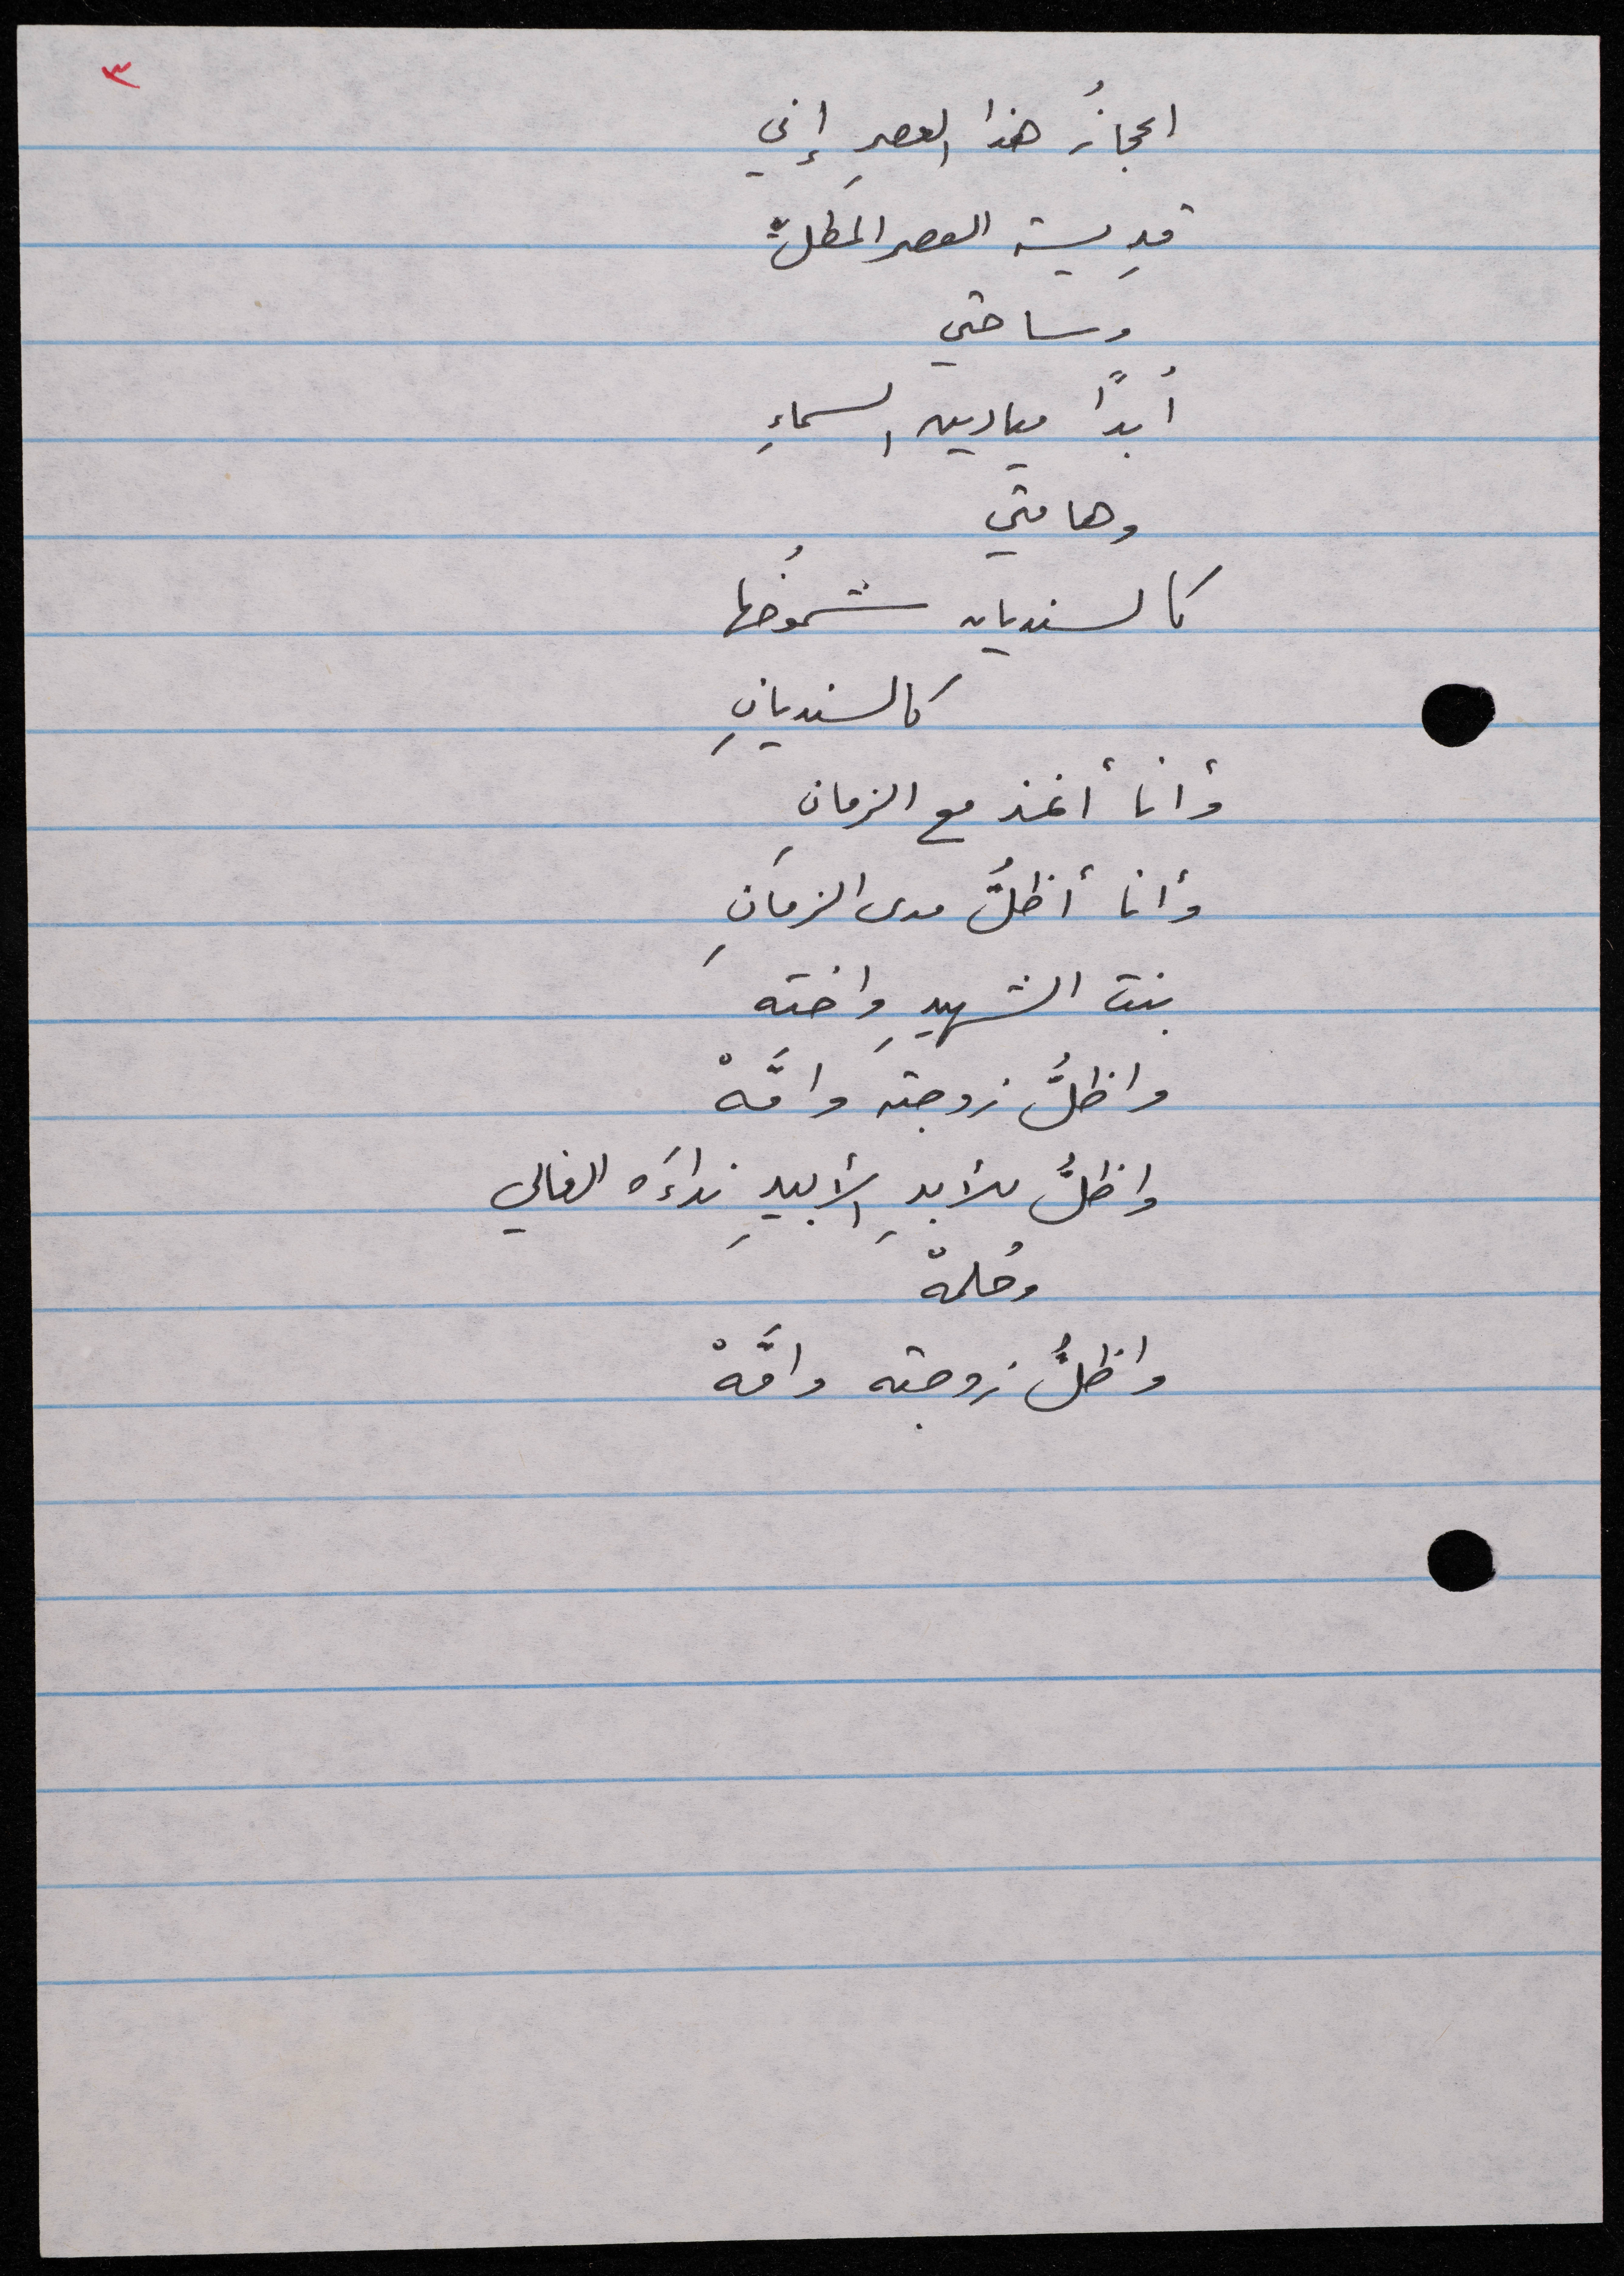 ٣
اعجازُ هذا العصرِ إني
قدِيسة العصر المطلّ
وساحتي
أبدًا ميادين السماءِ
وهامتي
كالسنديان شموخُها
كالسنديانِ
وأنا أغذ مع الزمانِ
وأنا أظلُّ مدى الزمانِ
بنت الشهيدِ واخته
واظلُّ زوجته وامَّهْ
واظلُّ للأبدِ الأبيدِ نداءَه الغالي
وحُلمهْ
واظلُّ زوجته وامَّهْ